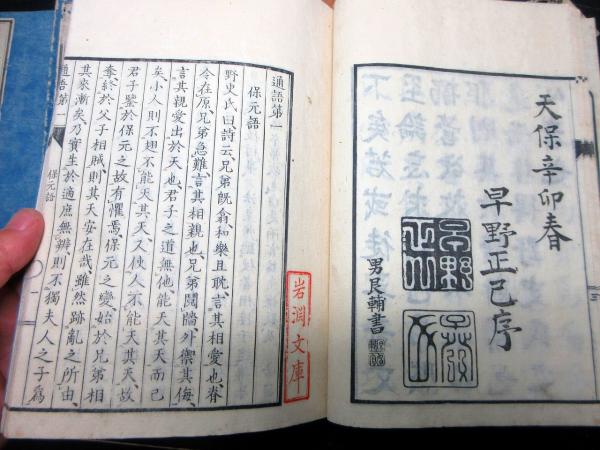 天保辛卯春
早野正己序
男艮輔書
岩淵文庫
通語第一
保元語
野史氏曰詩云兄弟既翕和樂且耽言其相愛也脊
令在原兄弟急難言其相親也兄弟鬩牆外禦其侮
言其親愛出於天也君子之道無他能天其天而已
矣小人則不翅不能天其天又使人不能天其天故
君子鑒於保元之故有懼焉保元之變始於兄弟相
奪終於父子相賊則其天安在哉雖然跡亂之所由
其來漸矣乃實生於適庶無辨則不獨夫人之子爲
通語第一
保元語
一